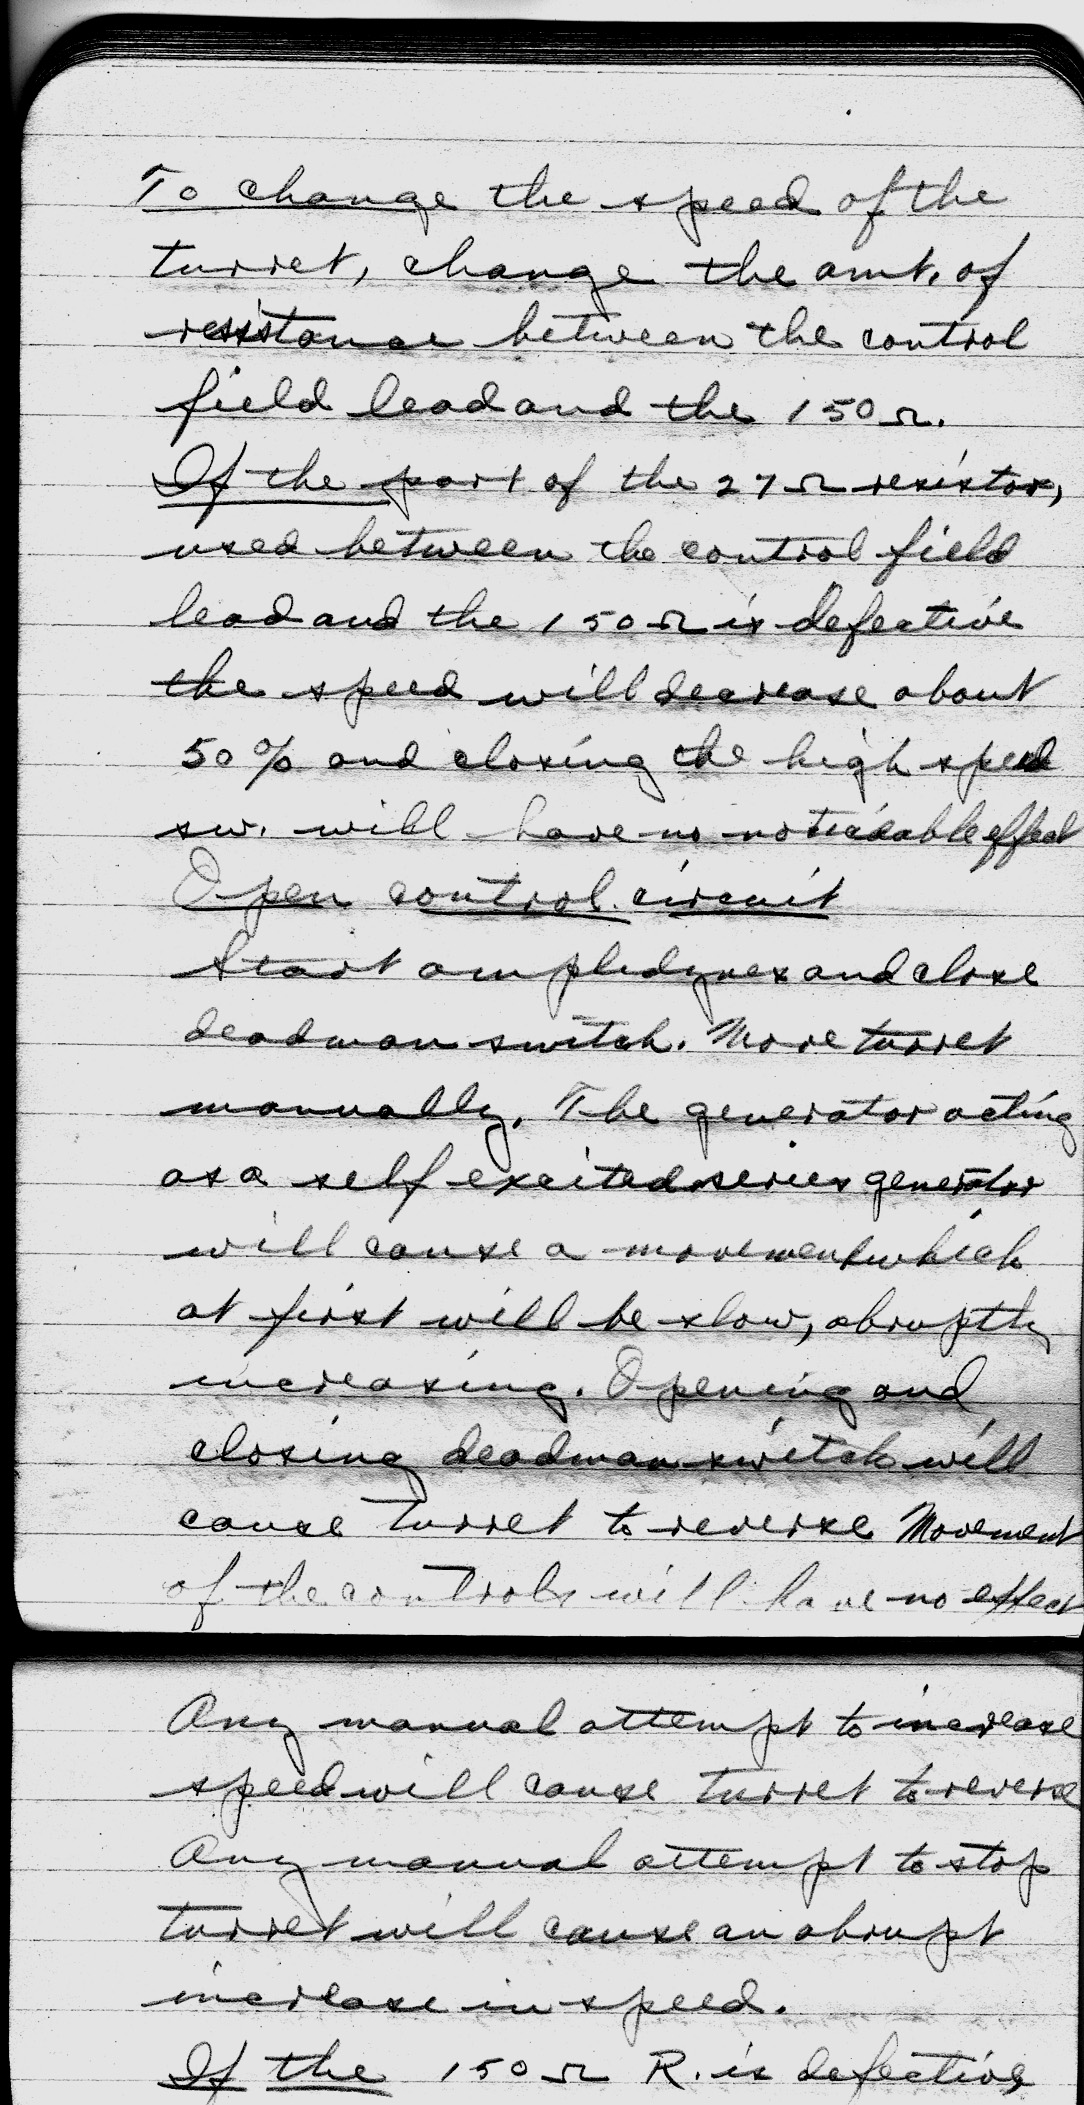 To change the speed of the
turret, change the amt. of
resistance between the control
field lead and the 150Ω.
If the part of the 27Ω resistor,
used between the control field
lead and the 150Ω is defective
the speed will decrease about
50% and closing the high speed
sw. will have no noticeable effect
Open control circuit
Start amplidynes and close
deadman switch. Move turret
manually. The generator acting
as a self excited series generator
will cause a movement which
at first will be slow, abruptly
increasing. Opening and
closing deadman switch will
cause turret to reverse Movement
of the controls will have no effect
Any manual attempt to increase
speed will cause turret to reverse
Any manual attempt to stop
turret will cause an abrupt
increase in speed.
If the 150Ω R. is defective,